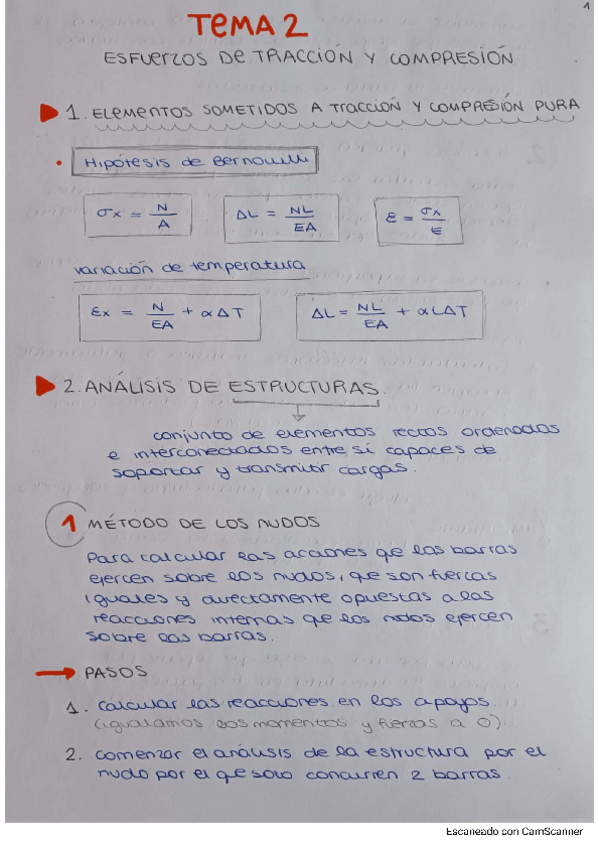 1
TEMA 2
ESFUERZOS DE TRACCIÓN Y COMPRESIÓN
1. ELEMENTOS SOMETIDOS A TRACCIÓN Y COMPRESIÓN PURA
• Hipótesis de Bernouilli
σx = N/A ΔL = NL/EA ε = σx/E
variación de temperatura
εx = N/EA + αΔT ΔL = NL/EA + αLΔT
2. ANÁLISIS DE ESTRUCTURAS.
conjunto de elementos rectos ordenados
e interconectados entre sí capaces de
soportar y transmitir cargas.
1 MÉTODO DE LOS NUDOS
Para calcular las acciones que las barras
ejercen sobre los nudos, que son fuerzas
iguales y directamente opuestas a las
reacciones internas que los nudos ejercen
sobre las barras.
→ PASOS
1. calcular las reacciones en los apoyos
(igualamos los momentos y fierzas a 0)
2. comenzar el análisis de la estructura por el
nudo por el que solo concurren 2 barras.
Escaneado con CamScanner